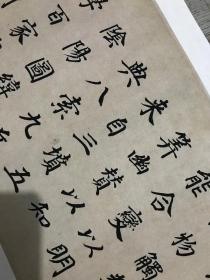 物觸
能合變以明
算幽賛以知
來自三墳五
典八索九
陰陽圖緯
學百家